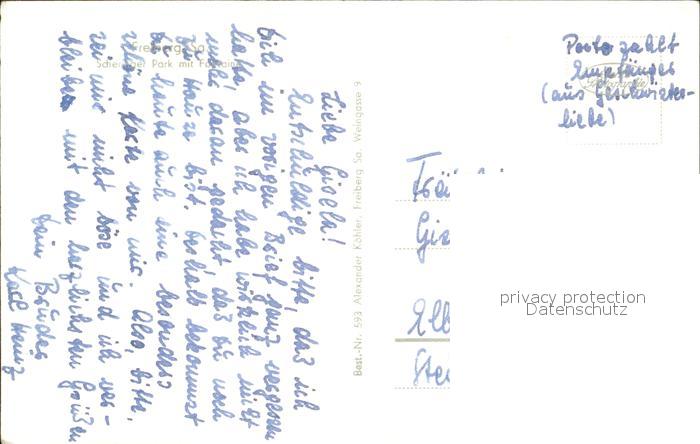 Freiberg Sa.
Scheringer Park mit Fontaine
Liebe Gisela!
Entschuldige bitte, das ich
dich im vorigen Brief ganz vergessen
hatte, aber ich habe wirklich nicht
mehr daran gedacht, das du noch
zu hause bist. Deshalb bekommst
du heute auch eine besonders
schöne Karte von mir. Also, bitte,
sei mir nicht böse und ich ver-
bleibe mit den herzlichsten Grüßen
Dein Bruder
Karl Heinz
Best.-Nr. 593 Alexander Köhler, Freiberg Sa. Weingasse 9
Porto zahlt
Empfänger
(aus Geschwister-
liebe)
Frä
Gis
Elb
privacy protection
Datenschutz